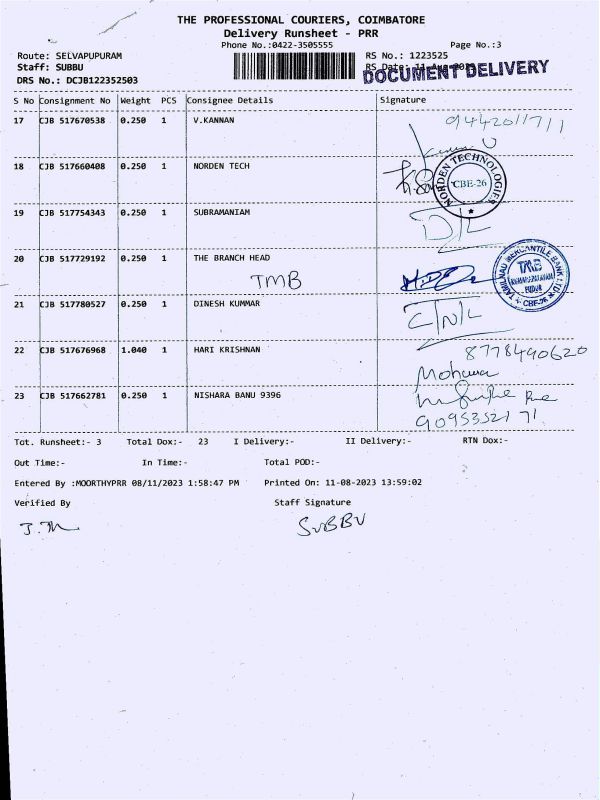 THE PROFESSIONAL COURIERS, COIMBATORE
Delivery Runsheet - PRR
Phone No.:0422-3505555 Page No.:3
Route: SELVAPUPURAM RS No.: 1223525
Staff: SUBBU RS Date: 11 Aug
DOCUMENT DELIVERY
DRS No.: DCJB122352503
S No Consignment No Weight PCS Consignee Details Signature
17 CJB 517670538 0.250 1 V.KANNAN
18 CJB 517660408 0.250 1 NORDEN TECH
NORDEN TECHNOLOGIES CBE-26
19 CJB 517754343 0.250 1 SUBRAMANIAM D/L
20 CJB 517729192 0.250 1 THE BRANCH HEAD
TMB
TAMILNAD MERCANTILE BANK LTD. TMB CBE-26
21 CJB 517780527 0.250 1 DINESH KUMMAR C/N/L
22 CJB 517676968 1.040 1 HARI KRISHNAN 8778490620
23 CJB 517662781 0.250 1 NISHARA BANU 9396
Tot. Runsheet:- 3 Total Dox:- 23 I Delivery:- II Delivery:- RTN Dox:-
Out Time:- In Time:- Total POD:-
Entered By :MOORTHYPRR 08/11/2023 1:58:47 PM Printed On: 11-08-2023 13:59:02
Verified By Staff Signature
SUBBU